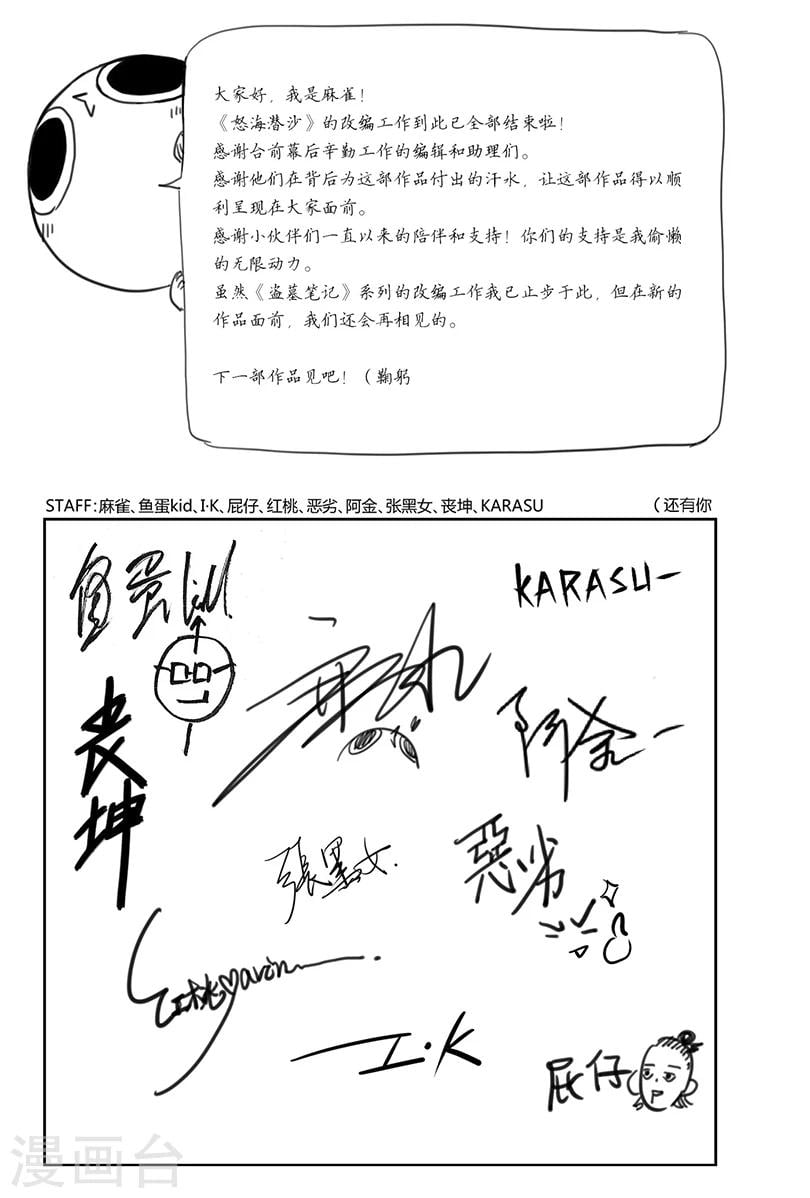 大家好，我是麻雀！
《怒海潜沙》的改编工作到此已全部结束啦！
感谢台前幕后辛勤工作的编辑和助理们。
感谢他们在背后为这部作品付出的汗水，让这部作品得以顺
利呈现在大家面前。
感谢小伙伴们一直以来的陪伴和支持！你们的支持是我偷懒
的无限动力。
虽然《盗墓笔记》系列的改编工作我已止步于此，但在新的
作品面前，我们还会再相见的。
下一部作品见吧！（鞠躬
STAFF：麻雀、鱼蛋kid、I·K、屁仔、红桃、恶劣、阿金、张黑女、丧坤、KARASU （还有你
鱼蛋kid
KARASU
丧坤
阿金
張黑女.
惡劣
I·K
屁仔
漫画台